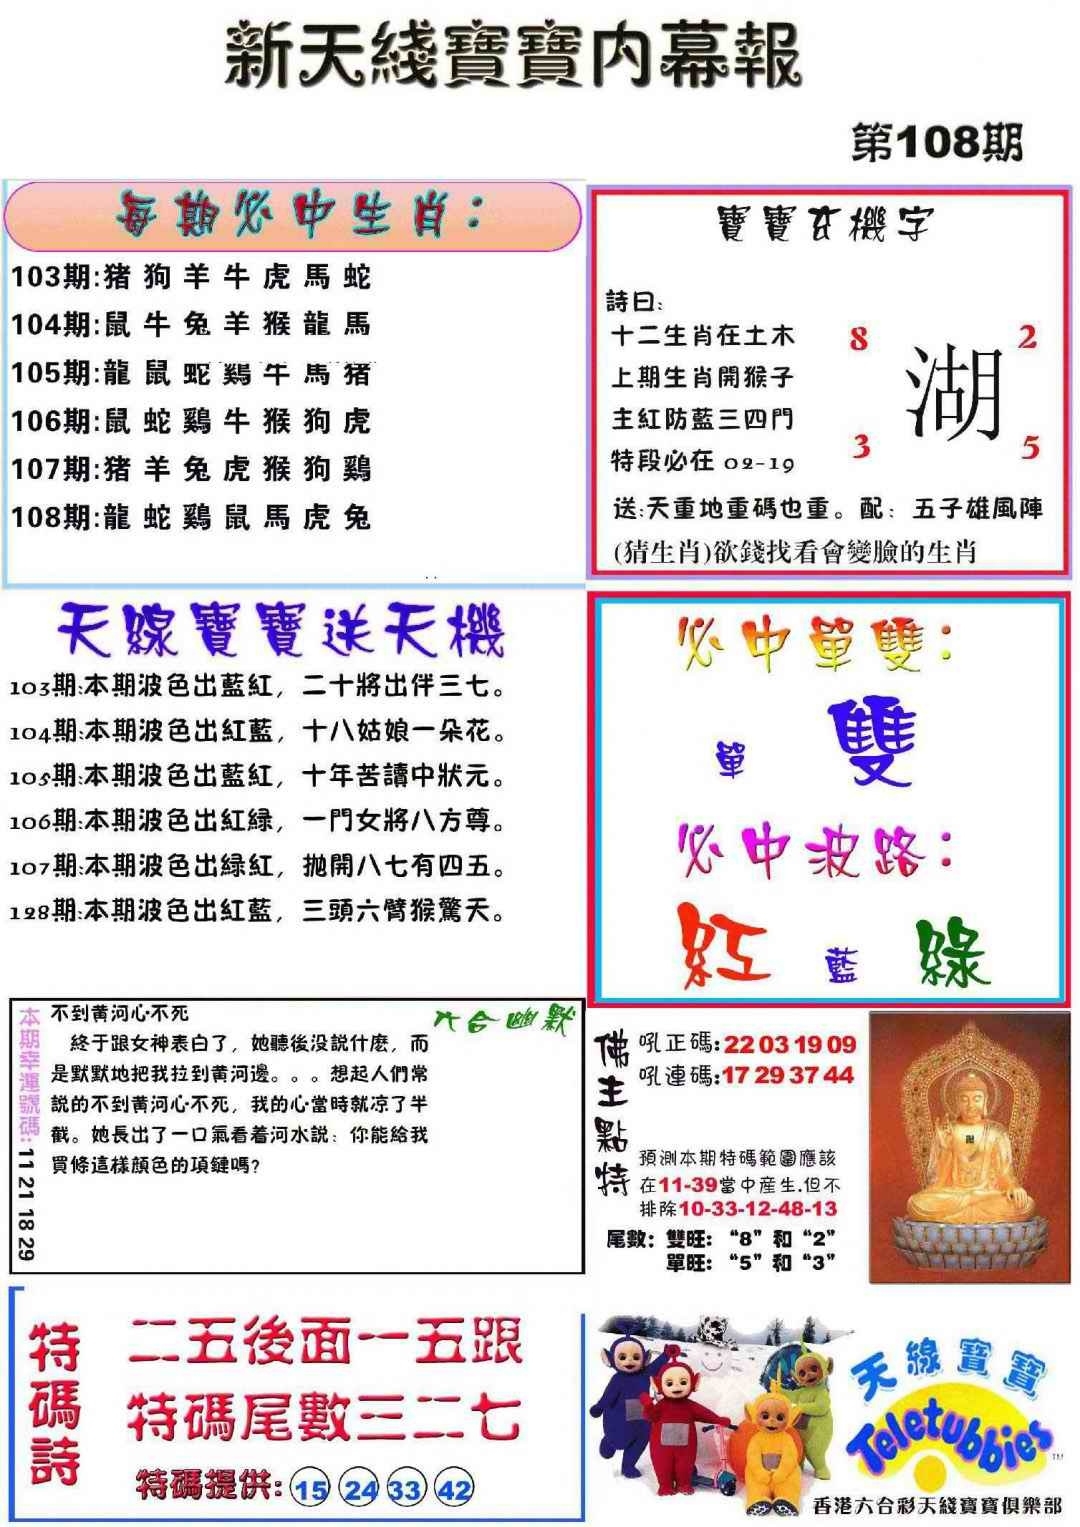 新天綫寶寶内幕報
第108期
每期必中生肖：
103期:猪狗羊牛虎馬蛇
104期:鼠牛兔羊猴龍馬
105期:龍鼠蛇鷄牛馬猪
106期:鼠蛇鷄牛猴狗虎
107期:猪羊兔虎猴狗鷄
108期:龍蛇鷄鼠馬虎兔
寶寶玄機字
詩曰:
十二生肖在土木
上期生肖開猴子
主紅防藍三四門
特段必在 02-19
8 2
湖
3 5
送:天重地重碼也重。配：五子雄風陣
(猜生肖)欲錢找看會變臉的生肖
天線寶寶送天機
103期:本期波色出藍紅，二十將出伴三七。
104期:本期波色出紅藍，十八姑娘一朵花。
105期:本期波色出藍紅，十年苦讀中狀元。
106期:本期波色出紅緑，一門女將八方尊。
107期:本期波色出緑紅，抛開八七有四五。
128期:本期波色出紅藍，三頭六臂猴驚天。
必中單雙：
單 雙
必中波路：
紅 藍 綠
本期幸運號碼:11 21 18 29
六合幽默
不到黄河心不死
終于跟女神表白了，她聽後没説什麽，而
是默默地把我拉到黄河邊。。。想起人們常
説的不到黄河心不死，我的心當時就凉了半
截。她長出了一口氣看着河水説：你能給我
買條這樣顔色的項鏈嗎?
佛主點特
吼正碼:22 03 19 09
吼連碼:17 29 37 44
預測本期特碼範圍應該
在11-39當中産生.但不
排除10-33-12-48-13
尾數：雙旺：“8”和“2”
單旺：“5”和“3”
特碼詩
二五後面一五跟
特碼尾數三二七
特碼提供: 15 24 33 42
天線寶寶
Teletubbies
TM
香港六合彩天綫寶寶俱樂部